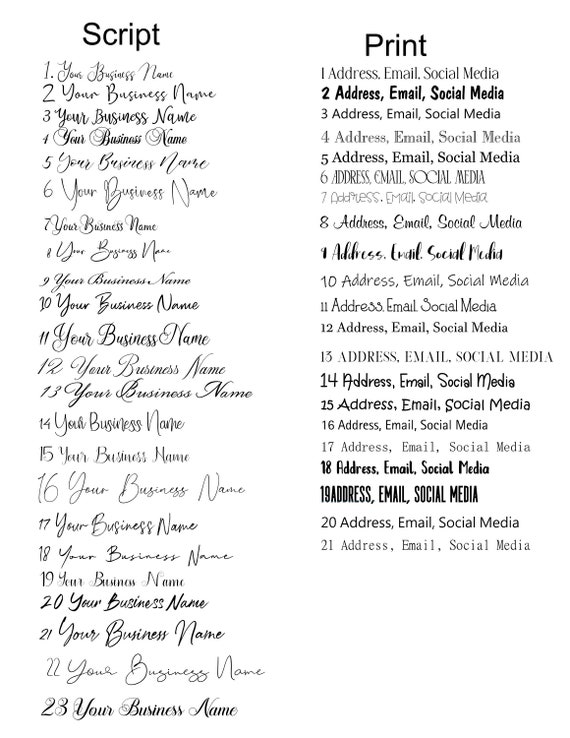 Script
1. Your Business Name
2 Your Business Name
3 Your Business Name
4 Your Business Name
5 Your Business Name
6 Your Business Name
7 Your Business Name
8 Your Business Name
9 Your Business Name
10 Your Business Name
11 Your Business Name
12 Your Business Name
13 Your Business Name
14 Your Business Name
15 Your Business Name
16 Your Business Name
17 Your Business Name
18 Your Business Name
19 Your Business Name
20 Your Business Name
21 Your Business Name
22 Your Business Name
23 Your Business Name
Print
1 Address, Email, Social Media
2 Address, Email, Social Media
3 Address, Email, Social Media
4 Address, Email, Social Media
5 Address, Email, Social Media
6 ADDRESS, EMAIL, SOCIAL MEDIA
7 Address, Email, Social Media
8 Address, Email, Social Media
9 Address, Email, Social Media
10 Address, Email, Social Media
11 Address, Email, Social Media
12 Address, Email, Social Media
13 ADDRESS, EMAIL, SOCIAL MEDIA
14 Address, Email, Social Media
15 Address, Email, Social Media
16 Address, Email, Social Media
17 Address, Email, Social Media
18 Address, Email, Social Media
19ADDRESS, EMAIL, SOCIAL MEDIA
20 Address, Email, Social Media
21 Address, Email, Social Media